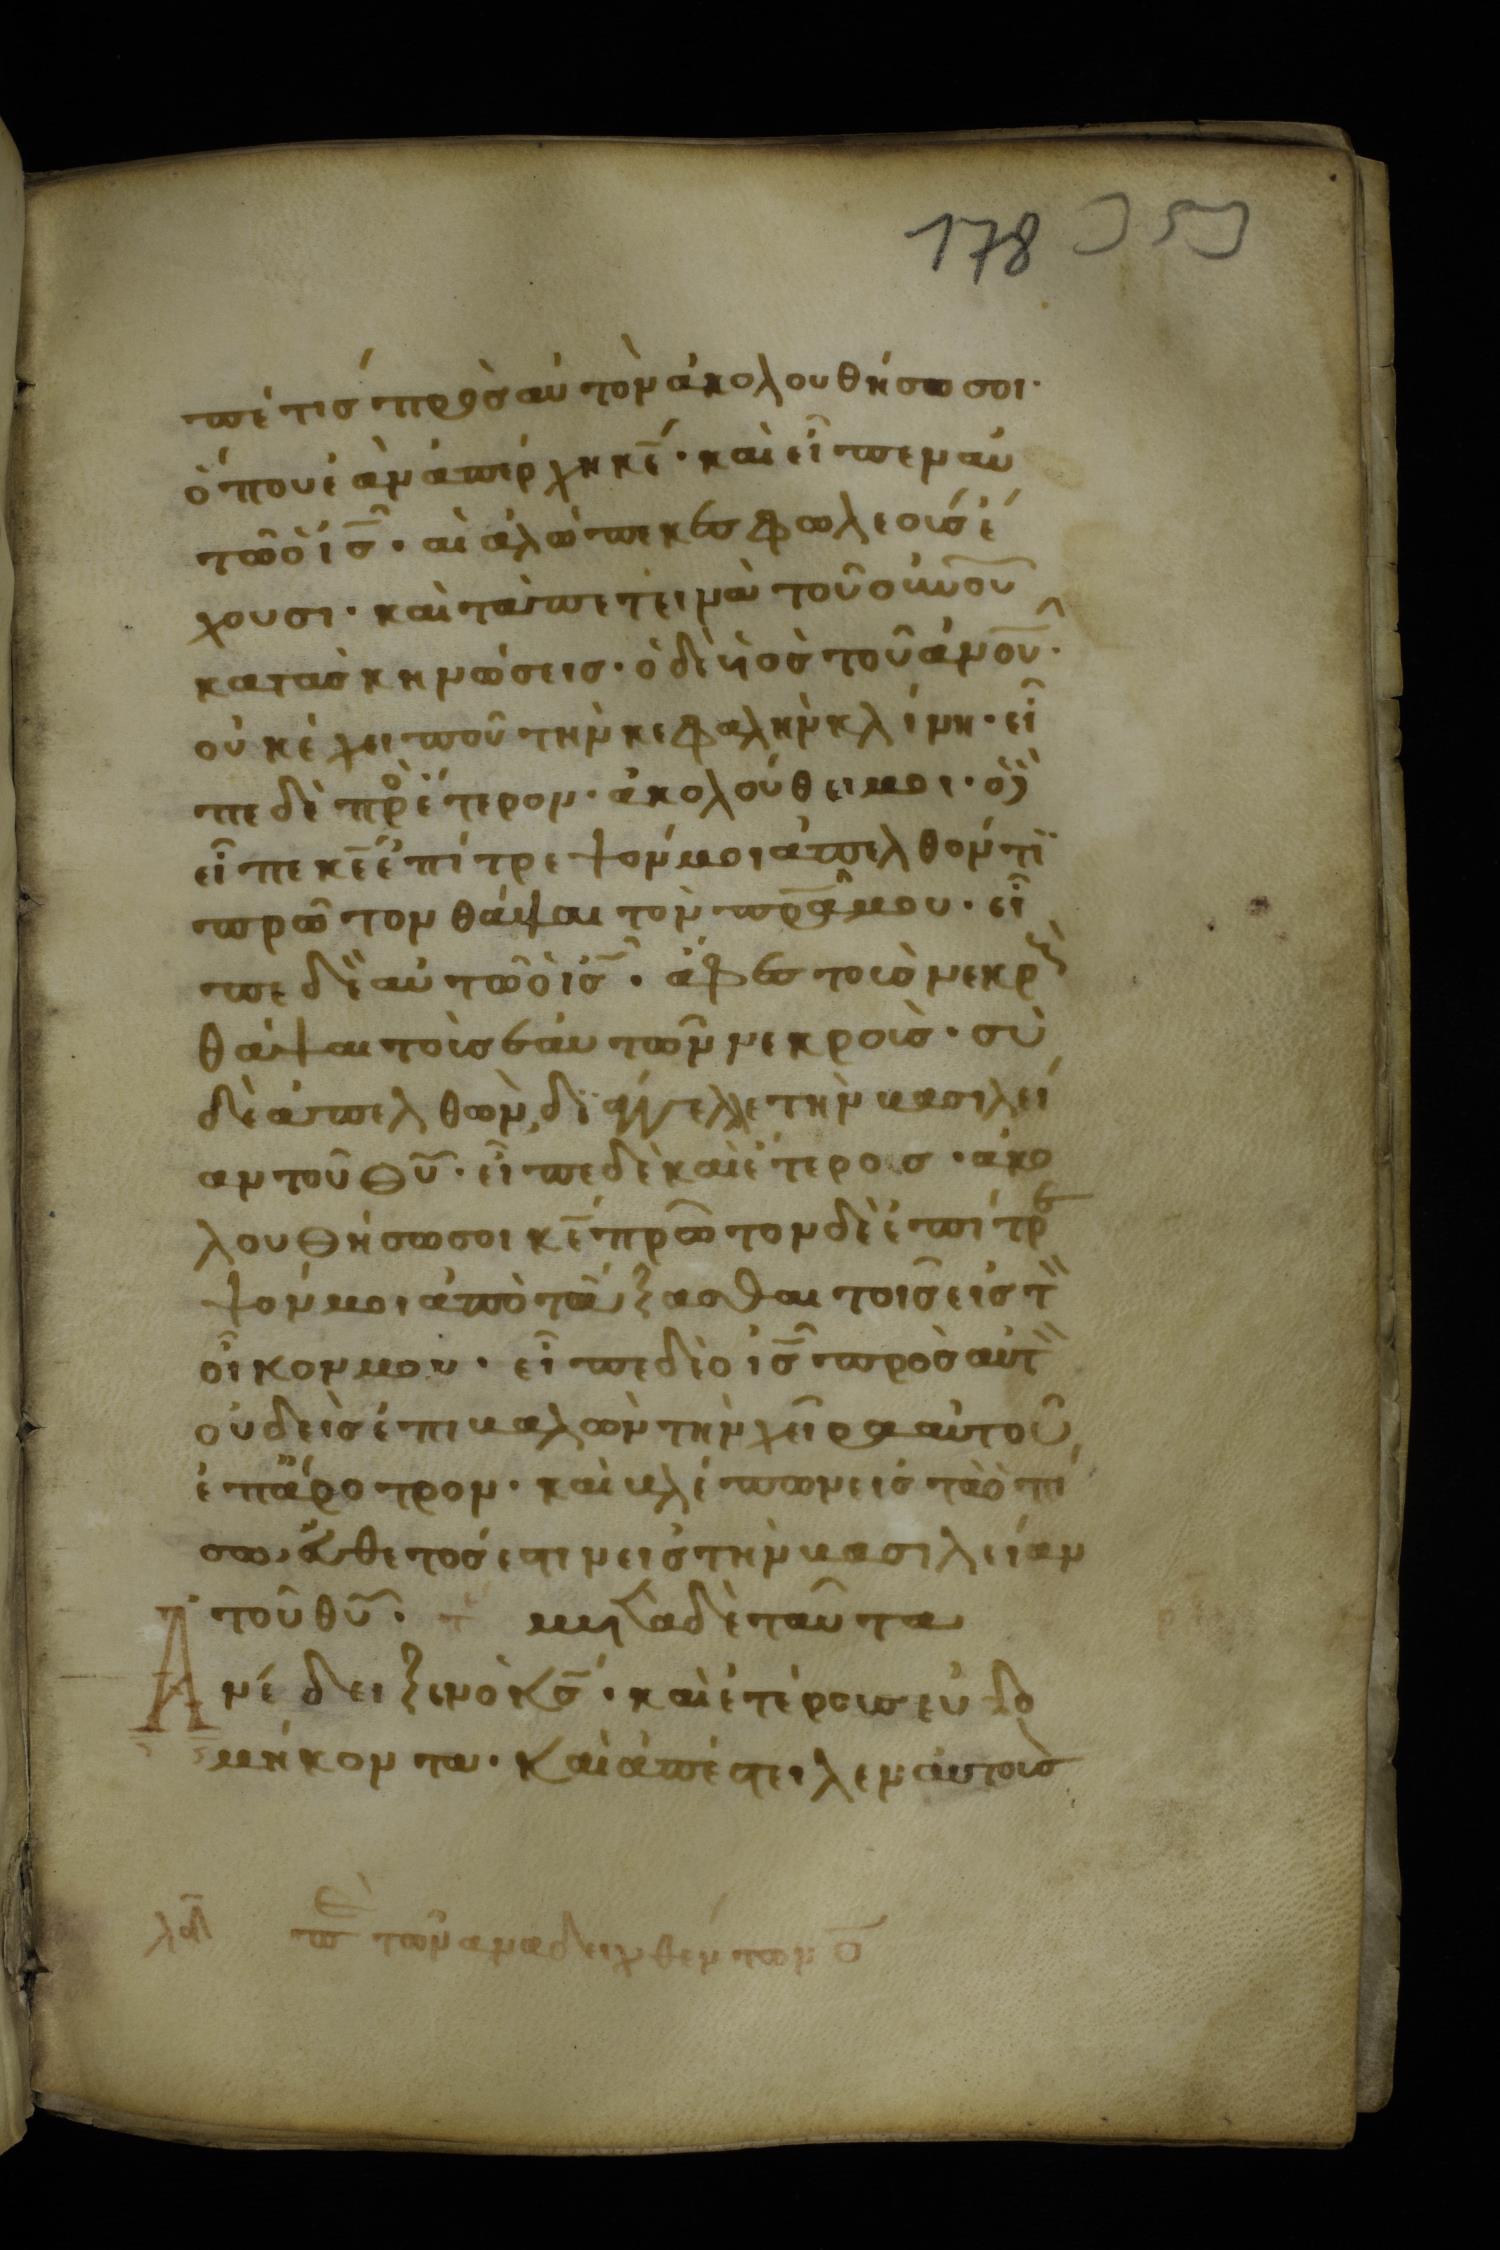 178
πέ τις πρὸς αὐτὸν ἀκολουθήσω σοι·
ὅπου ἐὰν ἀπέρχη κ̅ε̅· καὶ εἶπεν αὐ
τῶ ὁ ι̅ς̅· αἱ ἀλώπεκες φωλεοὺς ἔ
χουσι· καὶ τὰ πετεινὰ τοῦ ο̅υ̅ν̅ο̅υ̅
κατασκηνώσεις· ὁ δὲ υἱὸς τοῦ α̅ν̅ο̅υ̅·
οὐκ ἔχει ποῦ τὴν κεφαλὴν κλίνη· εἶ
πε δὲ πρὸς ἕτερον· ἀκολούθει μοι· ὁ δὲ
εἶπε κ̅ε̅ ἐπίτρεψόν μοι ἀπελθόντι
πρῶτον θάψαι τὸν π̅ρ̅α̅ μου· εἶ
πε δὲ αὐτῶ ὁ ι̅ς̅· ἄφες τοὺς νεκροὺς
θάψαι τοὺς ἑαυτῶν νεκρούς· σὺ
δὲ ἀπελθὼν, διάγγελλε τὴν βασιλεί
αν τοῦ θ̅υ̅· εἶπε δὲ καὶ ἕτερος· ἀκο
λουθήσω σοι κ̅ε̅ πρῶτον δὲ ἐπίτρε
ψόν μοι ἀποτάξασθαι τοῖς εἰς τὸν
οἶκον μου· εἶπε δὲ ὁ ι̅ς̅ πρὸς αὐτὸν
οὐδεὶς ἐπιβαλὼν τὴν χεῖρα αὐτοῦ,
ἐπ' ἄροτρον· καὶ βλέπων εἰς τὰ ὀπί
σω, εὔθετός ἐστιν εἰς τὴν βασιλείαν
τοῦ θ̅υ̅· τε μετὰ δὲ ταῦτα
Ἀνέδειξεν ὁ κ̅ς̅· καὶ ἑτέρους ἑβδο
μήκοντα· καὶ ἀπέστειλεν αὐτοὺς
περὶ τῶν ἀναδειχθέντων ο̅